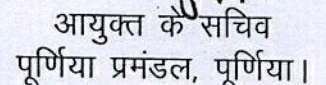 आयुक्त के सचिव
पूर्णिया प्रमंडल, पूर्णिया।